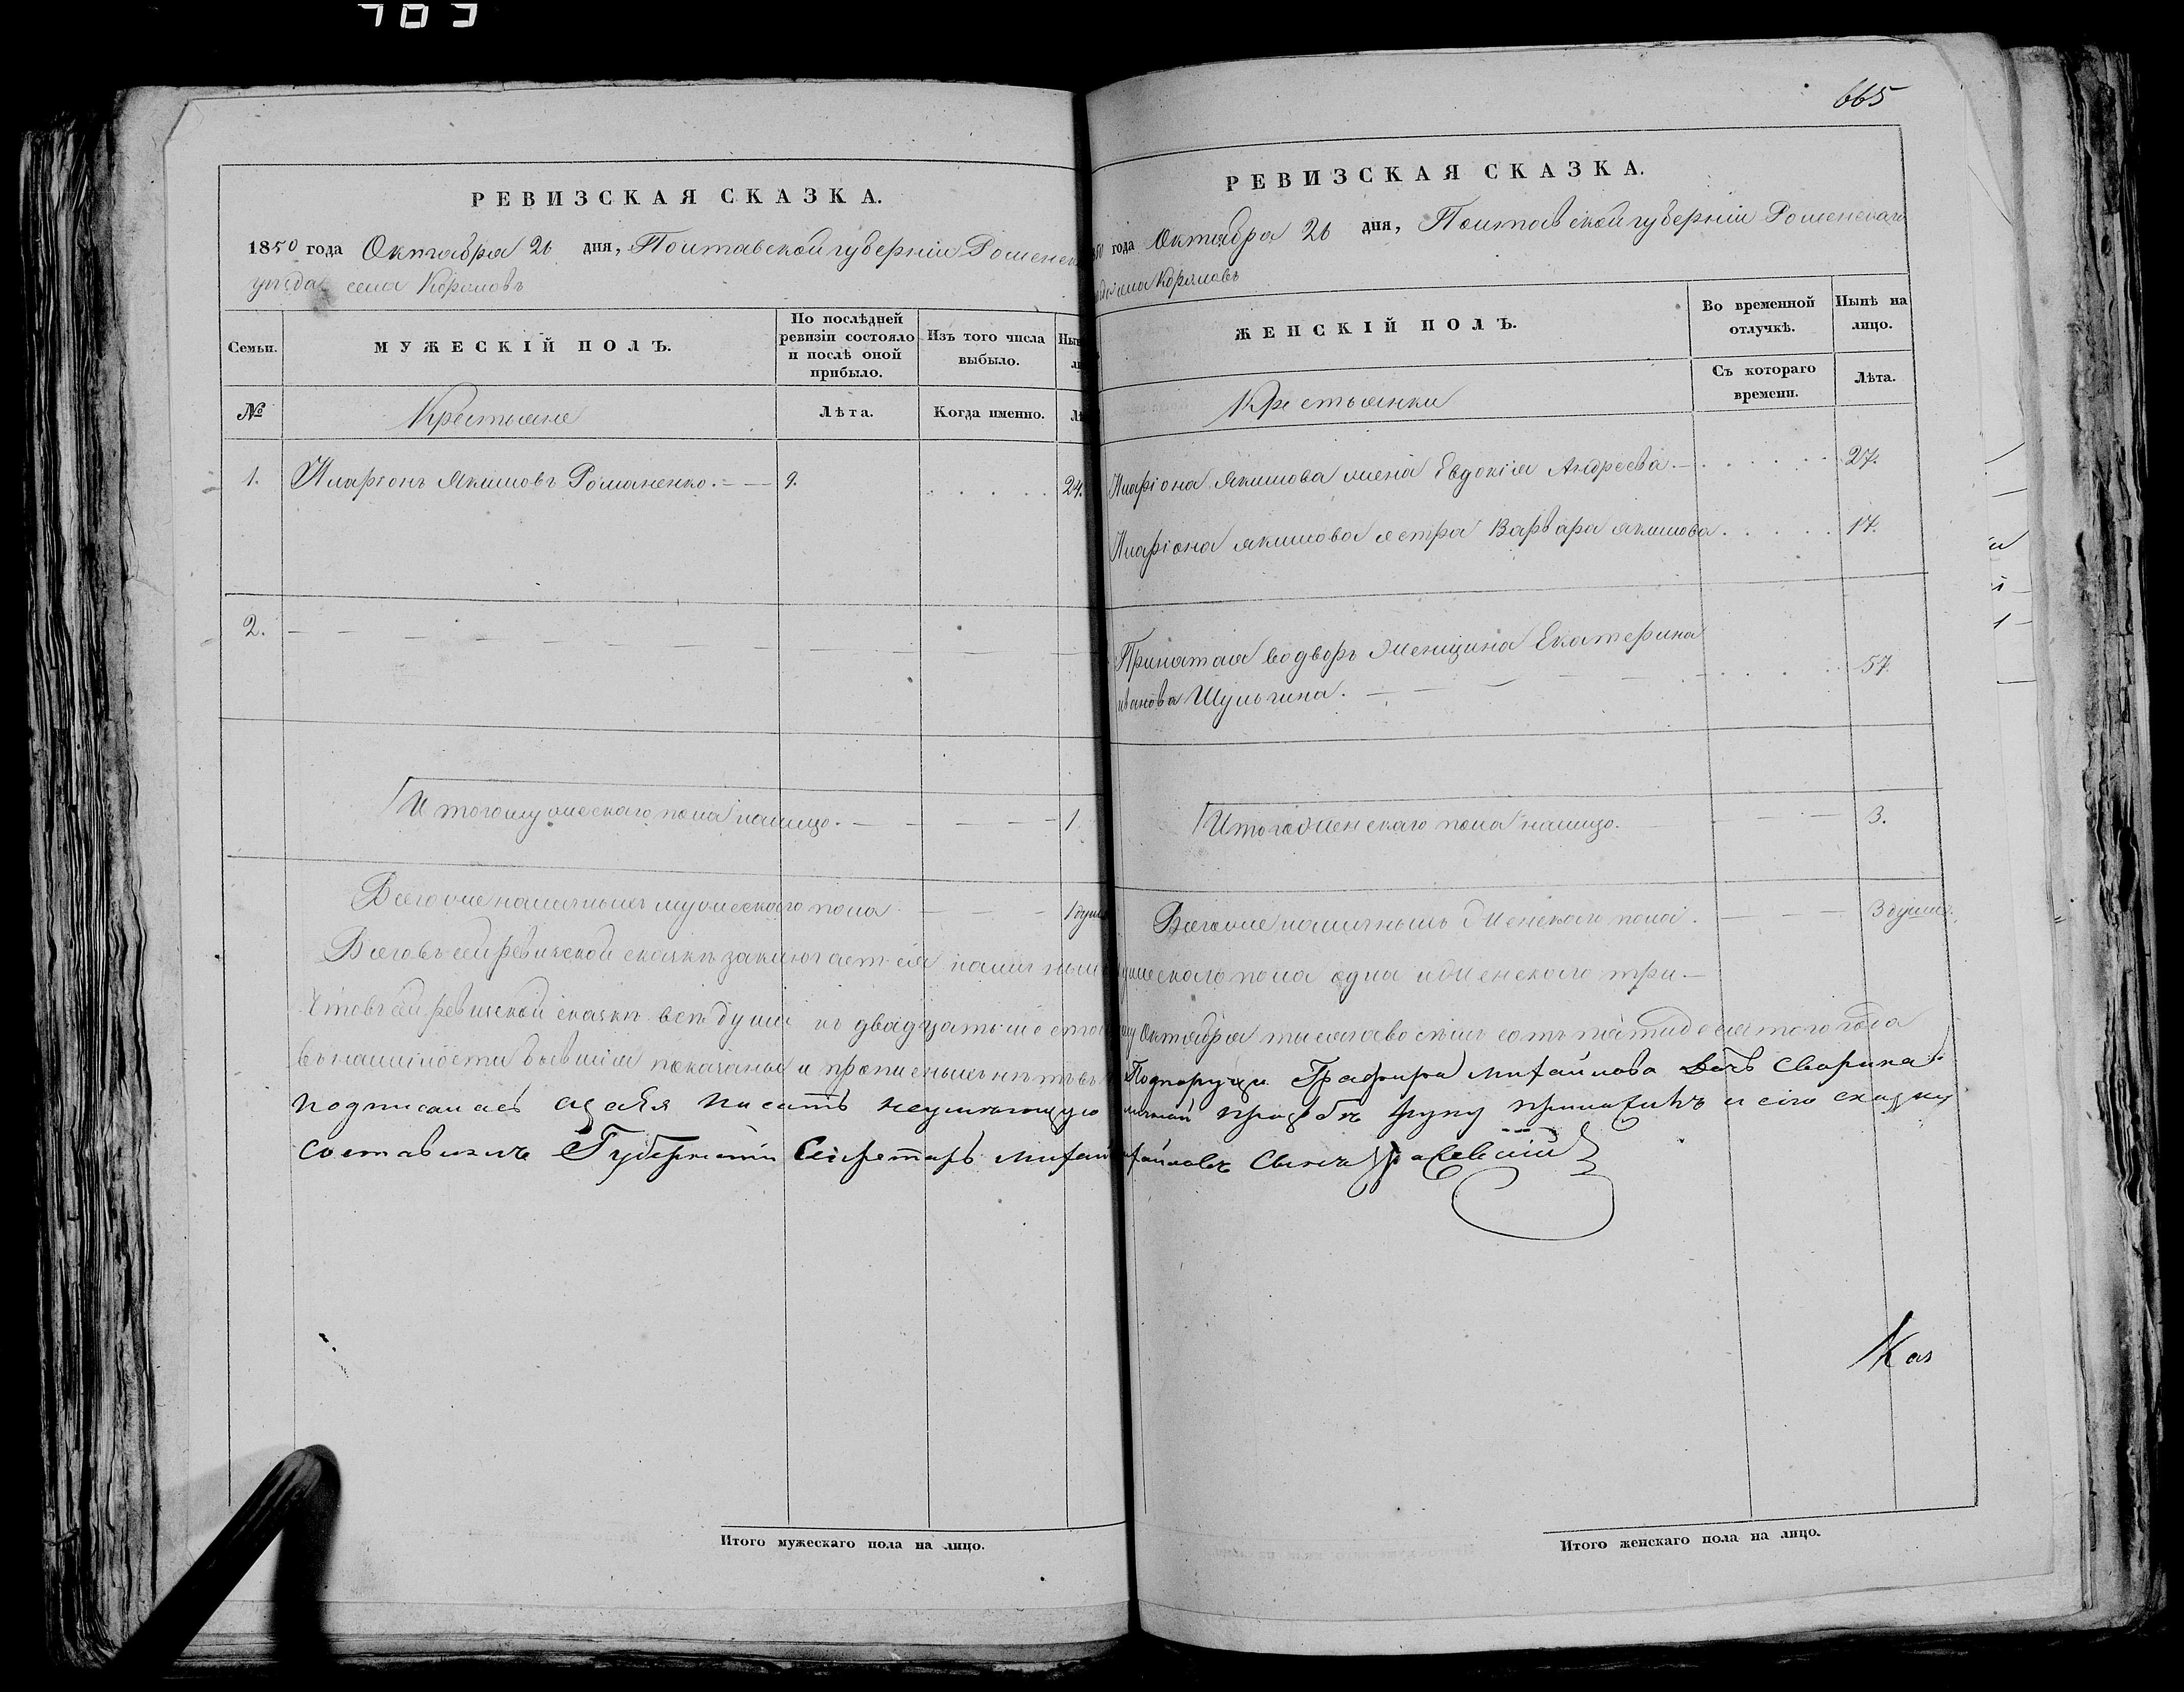 703
665
РЕВИЗСКАЯ СКАЗКА.
1850 года Октября 26 дня, Полтавской губерніи Роменск
уѣзда села Коровинъ
Семьи.
МУЖЕСКІЙ ПОЛЪ.
По послѣдней ревизіи состояло и послѣ оной прибыло.
Изъ того числа выбыло.
№
Крестьяне
Лѣта.
Когда именно.
1. Иларіонъ Якимовъ Романенко. 9. 24.
2.
Итого мужескаго пола налицо. 1.
Всего же наличныхъ мужескаго пола 1 душа
РЕВИЗСКАЯ СКАЗКА.
года Октября 26 дня, Полтавской губерніи Роменскаго
ЖЕНСКІЙ ПОЛЪ.
Во временной отлучкѣ.
Нынѣ на лицо.
Крестьянки
Съ котораго времени.
Лѣта.
Иларіона Якимова жена Евдокія Андреева. 27.
Иларіона Якимова сестра Варвара Якимова 17.
Принятая во дворъ женщина Екатерина
Иванова Шульгина. 57.
Итого женскаго пола налицо. 3.
Всего же наличныхъ женскаго пола. 3 души.
Всего въ сей ревизской сказкѣ заключается налич мужескаго пола одна и женскаго три.
Что въ сей ревизской сказкѣ всѣ души къ двадцать шестому Октября тысяча восемь сотъ пятидесятого года
въ наличности бывшія показаны и прописныхъ нѣтъ въ Подпоручи Михайлова Дочь
подписалась а за нея писать неумѣющую личной прозбѣ руку приложилъ и сію сказку
составилъ Губернскій Секретарь Михайловъ Сынъ
Каз
Итого мужескаго пола на лицо.
Итого женскаго пола на лицо.